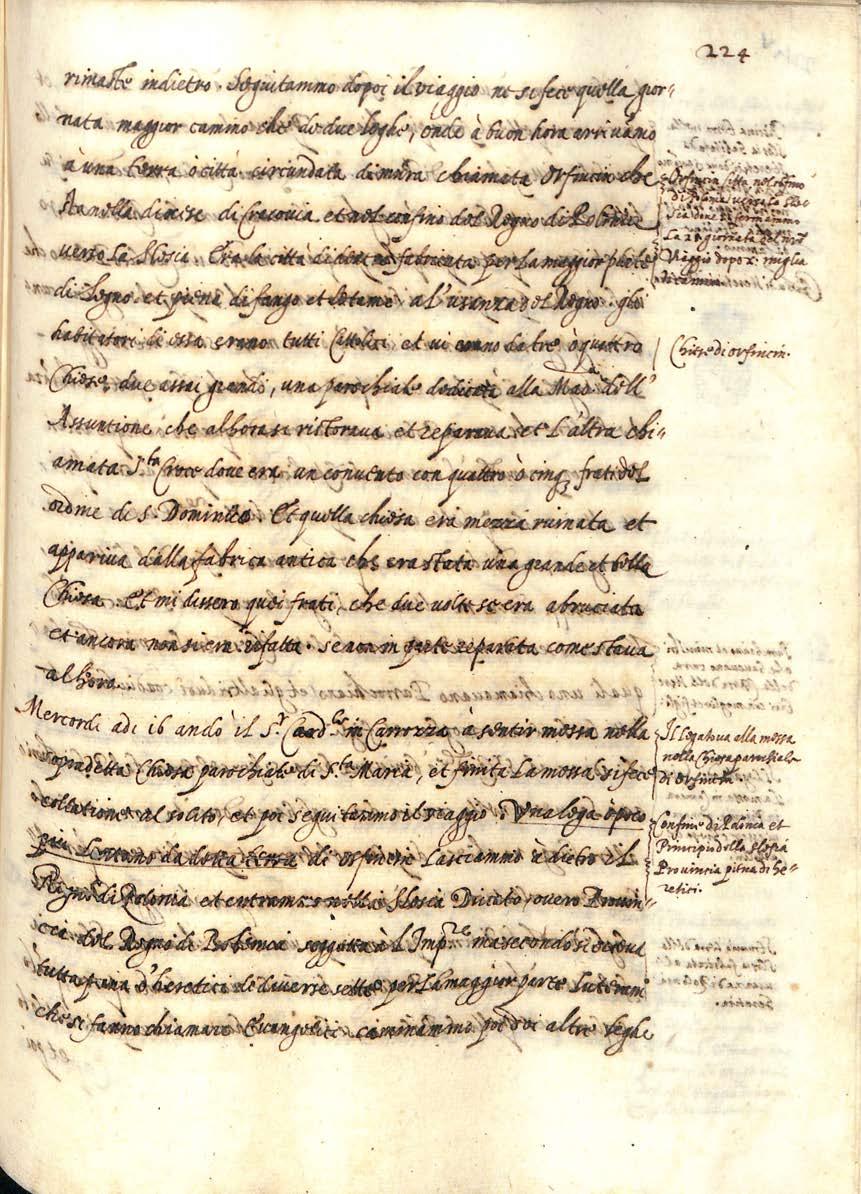 224
rimaste indietro. Seguitammo dopoi il viaggio ne si fece quella gior-
nata maggior camino che de due leghe, onde à buon hora arrivamo
à una terra ò città circundata di mura chiamata Osfincin che
sta nella diocese di Cracovia et nel confino del Regno di Polonia
verso la Slesia. Era la città di dentro fabricata per la maggior parte
di legno, et piena di fango et letame a l'usanza del Regno. gli
habitatori di essa erano tutti Cattolici et vi erano da tre ò quattro
Chiese, due assai grandi, una parochiale dedicata alla Mad.ª dell'
Assuntione, che alhora si ristorava et reparava et l'altra chi-
amata S.ta Croce dove era un convento con quattro ò cinq; frati del
ordine de S. Dominico. Et quella chiesa era mezza ruinata et
appariva dalla fabrica antica che era stata una grande et bella
Chiesa. Et mi dissero quei frati, che due volte se era abruciata
et ancora non si era rifatta. se non in parte reparata come stava
alhora.
Mercordi adi 16 andò il S.r Card.le in Carrozza à sentir messa nella
sopradetta Chiesa parochiale di S.ta Maria, et finita la messa si fece
collatione al solito, et poi seguitammo il viaggio. Una lega ò poco
più lontano da detta terra di Osfincin lasciammo à dietro il
Regno di Polonia et entrammo nella Slesia Ducato, overo Provin-
cia del Regno di Bohemia soggetta à l'Imp.re ma secondo si diceva
tutta piena d'heretici de diverse sette per la maggior parte luterani
che si fanno chiamare Evangelici caminammo poi doi altre leghe
Osfincin città nel confino
di Polonia verso la Slesia
dove si fermammo
la 2ª giornata del
viaggio dopo x. miglia
di camino.
Chiese di Osfincin.
Il legato va alla messa
nella Chiesa parochiale
di Osfincin
Confine di Polonia et
Principio della Slesia
Provincia piena di he-
retici.